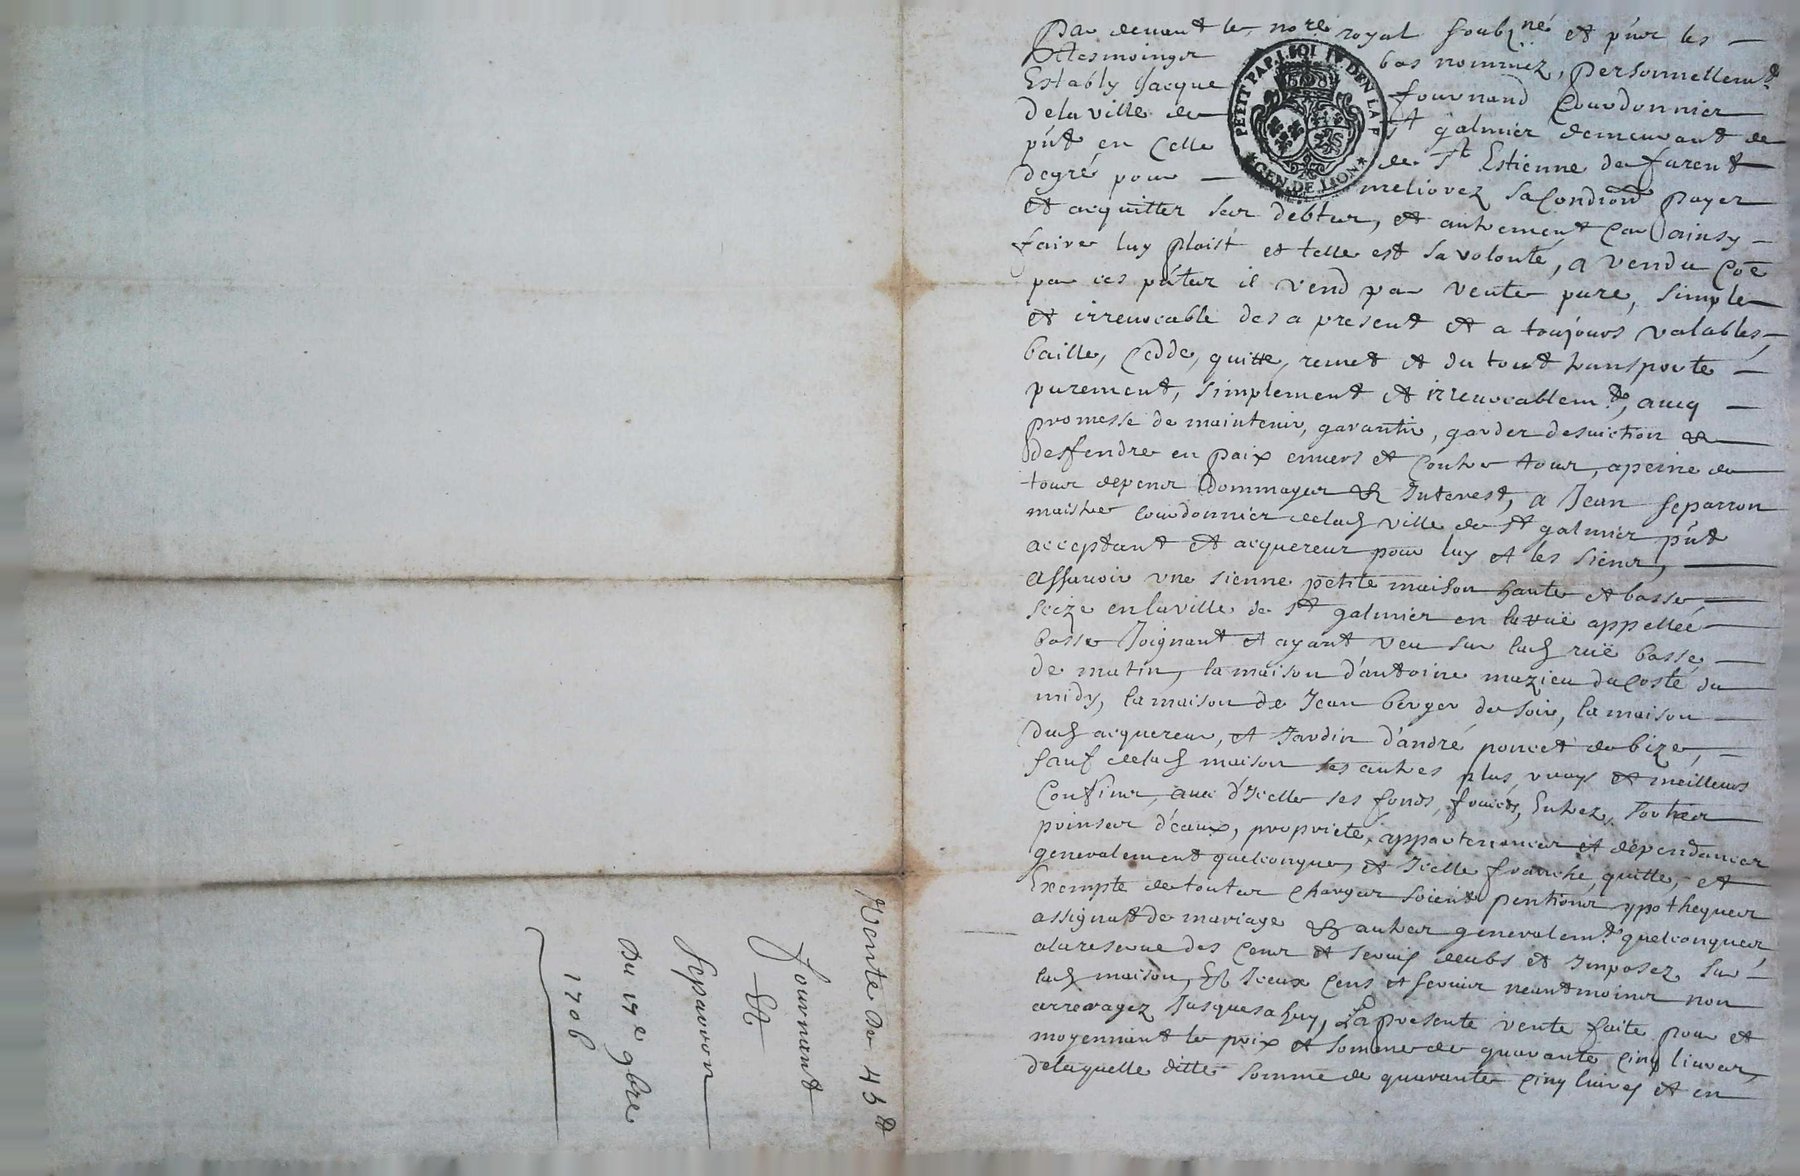 Par devant le no.re royal soubz.né et pñt les
tesmoingz bas nommez, personnellem.t
Estably Jacque fournand Courdonnier
dela ville de St galmier demeurant de
pñt en Celle de St Estienne de furent
degré pour meliorez sa Condiõn payer
et acquitter ses debtes, et autrement Car ainsy
faire luy plaist et telle est sa volonté, a vendu Coẽ
par ces pñtes il vend par vente pure, simple
et irrevocable des a present et a toujours valables,
baille, Cedde, quitte, remet et du tout transporte
purement, simplement et irrevocablem.t, aucq
promesse de maintenir, garantir, garder desuiction et
desfendre en paix enuers et Contre tous, a peine de
tous depens Dommages & Interest, a Jean separron
maistre Courdonnier delad ville de St galmier pñt
acceptant et acquereur pour luy et les siens,
assauoir une sienne petite maison haute et basse,
seize en la ville de St galmier en la ruë appellée
basse Joignant et ayant veu sur lad ruë basse,
de matin, la maison d'antoine mazieu du Costé du
midy, la maison de Jean berger de soir, la maison
dud acquereur, et Jardin d'andré poncet de bize,
sauf delad maison ses autres plus vrays et meilleurs
Confins, auec d'Icelle ses fonds, Entrez, sorties
prinses d'eaux, proprieté, appartenances et dependances
generalement quelconques, et Icelle franche, quitte, et
Exempte de toutes Charges soient pentions ypotheques
assignatt de mariage & autres generalem.t quelconques
ala reserue des Cens et seruis deubs et Imposez sur
lad maison, & Iceux Cens et seruis neantmoins non
arreragez Jusques a huy, La presente vente faite pour et
moyennant le prix et somme de quarante Cinq liures,
delaquelle ditte somme de quarante Cinq liures et en
PETIT PAP. GEN. DE LION
Vente de 45 tt
fournand
Et
separron
Du 17e 9bre
1706